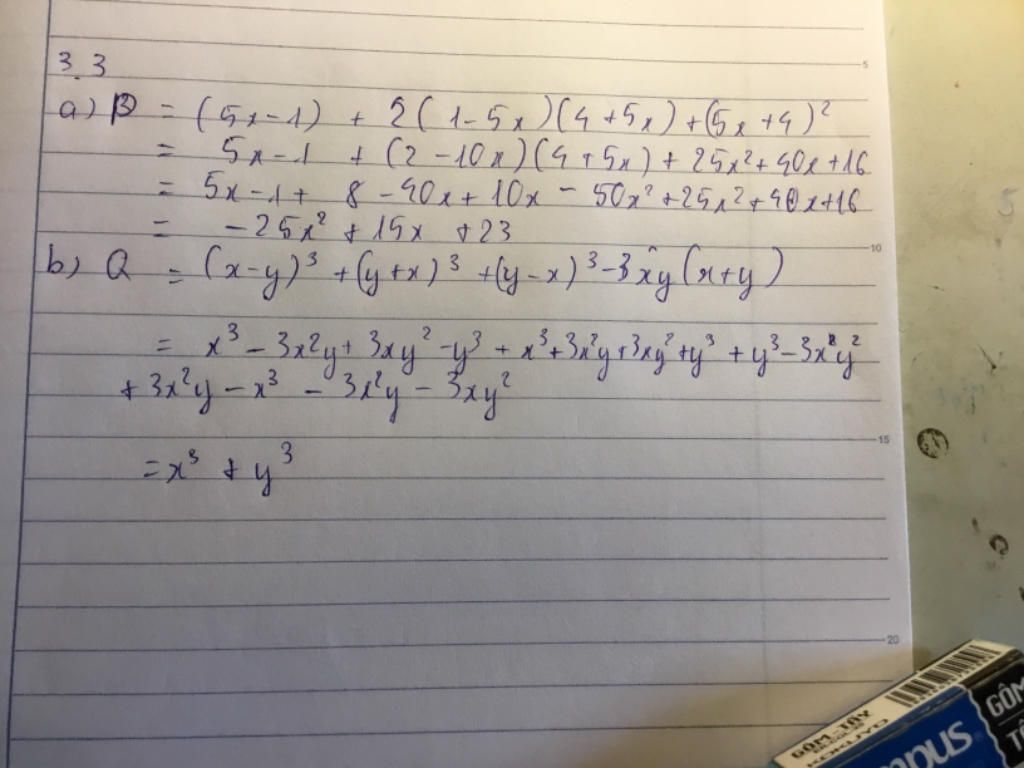 3.3
a) P = (5x-1) + 2(1-5x)(4+5x) + (5x+4)²
= 5x-1 + (2-10x)(4+5x) + 25x²+40x+16
= 5x-1+ 8-40x+10x - 50x²+25x²+40x+16
= -25x² + 15x +23
b) Q = (x-y)³ +(y+x)³ +(y-x)³-3xy(x+y)
= x³-3x²y+3xy²-y³ + x³+3x²y+3xy²+y³ + y³-3xy²
+ 3x²y - x³ - 3x²y - 3xy²
= x³ + y³
5
10
15
20
GÔM-TẨY
KOKUYO
mpus
GÔM